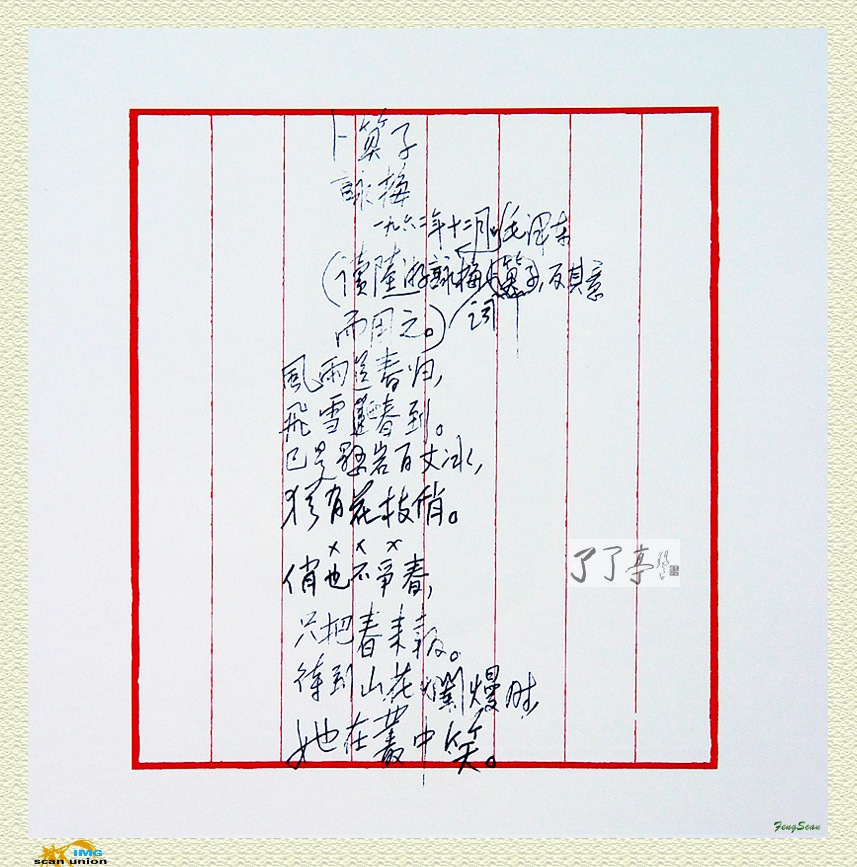 卜算子
詠梅
一九六二年十二月 毛泽东
（读陸游詠梅卜算子，反其意
而用之。）词
風雨送春归，
飛雪迎春到。
已是懸岩百丈冰，
犹有花枝俏。
× × ×
俏也不爭春，
只把春来报。
待到山花爛熳时，
她在叢中笑。
了了亭
FengScan
IMG
scan union